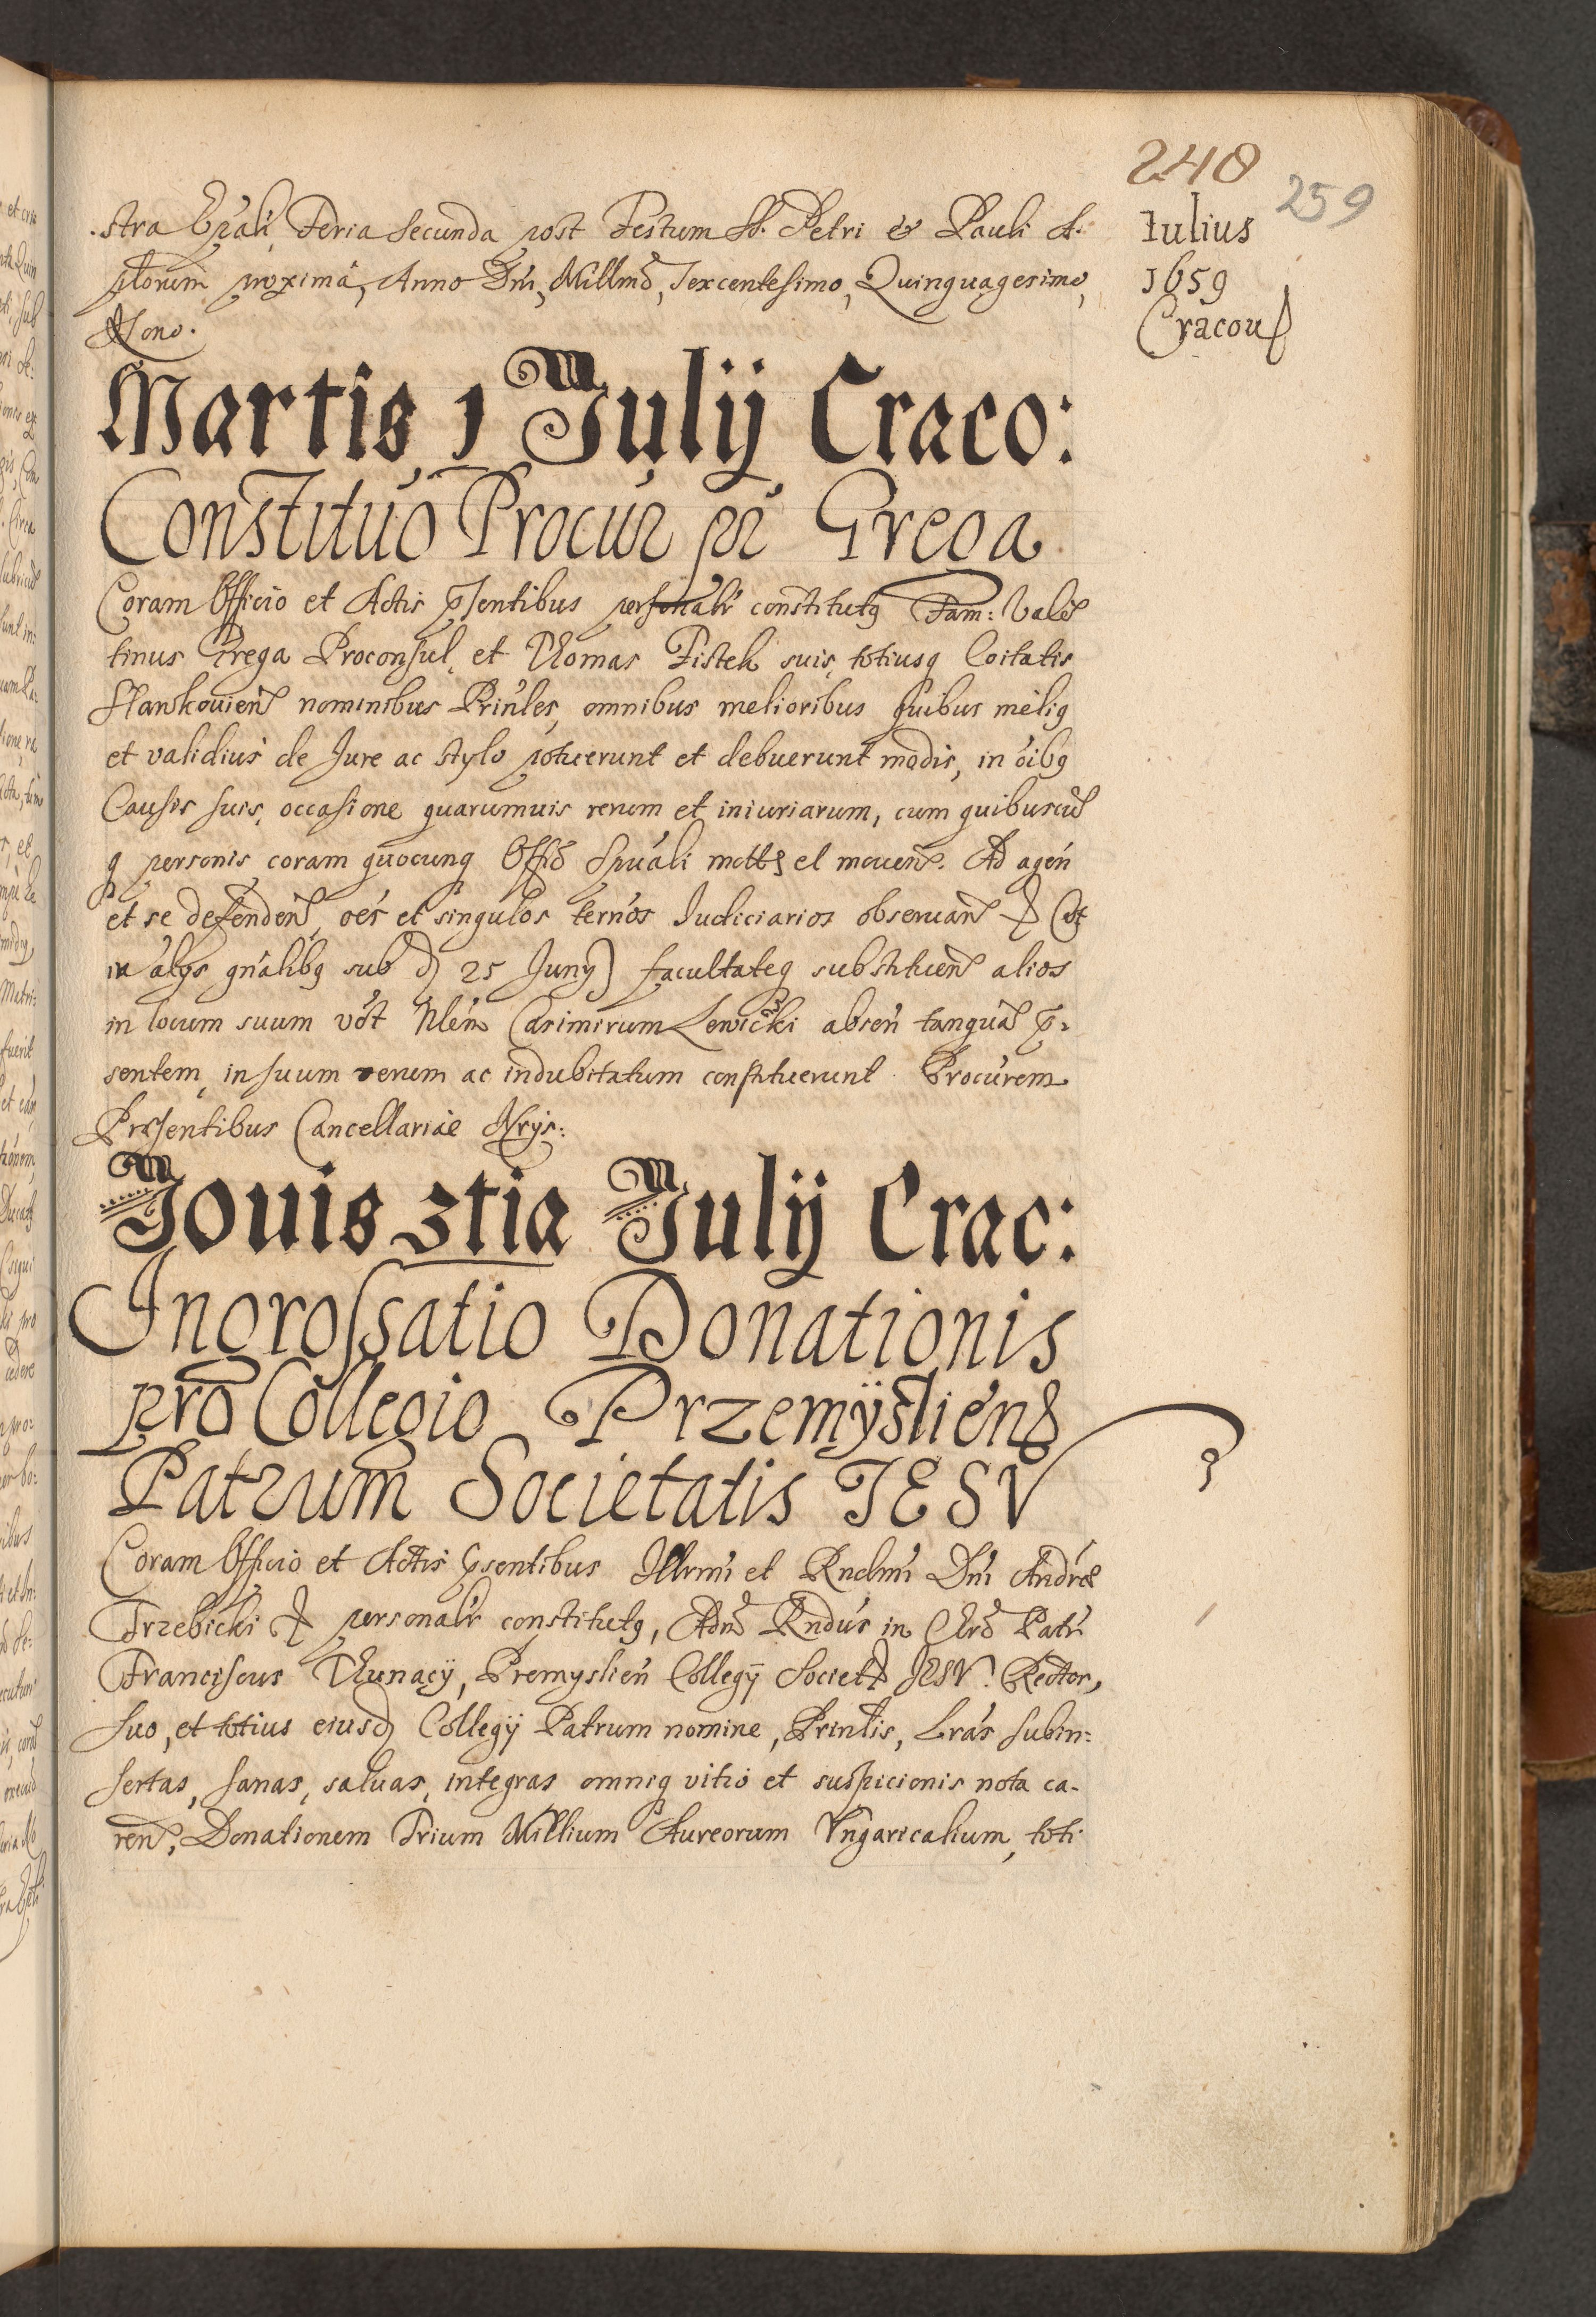 248
259
Iulius
1659
Cracou
stra Epali, Feria Secunda post Festum SS. Petri & Pauli A:
plorum proxima, Anno Dni, Millmo, Sexcentesimo, Quinquagesimo,
Nono.
Martis 1 Julij Craco:
Constituo Procur pr Grega
Coram Officio et Actis psentibus personalr constitutq Fam: Valen
tinus Grega Proconsul, et Thomas Fistek suis, totiusq Coitatis
Slawkouien nominibus Prinles, omnibus melioribus quibus meliq
et validius de Jure ac stylo potuerunt et debuerunt modis, in oibq
Causis suis, occasione quarumuis rerum et iniuriarum, cum quibuscu
q personis coram quocunq Offio Spuali mottis el mouen. Ad agen
et se defenden, oes et singulos ternos Iudiciarios obseruan (ut
in alys gnalibq sub d 25 Juny) facultateq substituen alios
in locum suum vot Nlem Casimirum Lewicki absen tanqua p:
sentem, in suum verum ac indubitatum constituerunt Procurem
Præsentibus Cancellariæ Nrys:
Jouis 3tia Julij Crac:
Ingrossatio Donationis
pro Collegio Przemÿsliens
Patrum Societatis IESV
Coram Officio et Actis psentibus Illrmi et Rndmi Dni Andreæ
Trzebicki personalr constitutq, Adm Rndus in Chro Patr
Franciscus Thunacÿ, Premyslien Collegÿ Societ JESV. Rector,
suo, et totius eiusd Collegÿ Patrum nomine, Prinlis, Lras subin:
sertas, sanas, saluas, integras omniq vitio et suspicionis nota ca-
ren, Donationem Trium Millium Aureorum Vngaricalium, toti